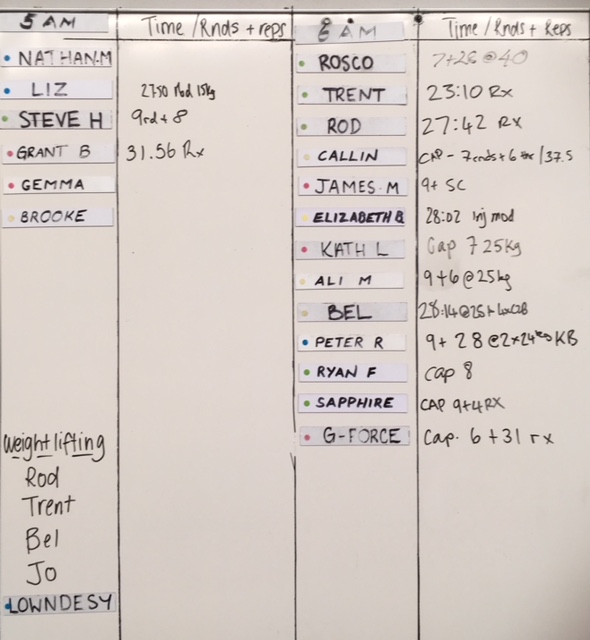 5 AM Time / Rnds + reps
NATHAN.M
LIZ 27:50 mod 15kg
STEVE H 9rd + 8
GRANT B 31.56 Rx
GEMMA
BROOKE
weightlifting
Rod
Trent
Bel
Jo
LOWNDESY
6 AM Time / Rnds + Reps
ROSCO 7+26 @ 40
TRENT 23:10 Rx
ROD 27:42 Rx
CALLIN CAP - 7 rnds + 6 /37.5
JAMES.M 9+ SC
ELIZABETH B 28:02 inj mod
KATH L Cap 7 25kg
ALI M 9+6 @ 25kg
BEL 28:14 @ 25+
PETER R 9+ 28 @ 2x24 KB
RYAN F cap 8
SAPPHIRE CAP 9+4 RX
G-FORCE Cap. 6 +31 rx